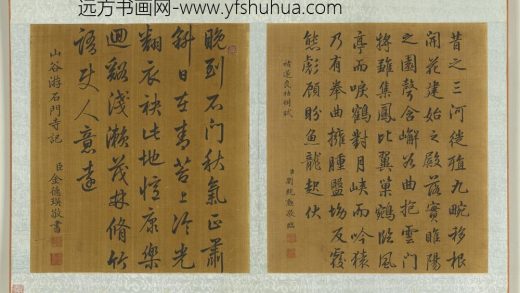 远方书画网-www.yfshuhua.com
昔之三河徙殖九畹移根
開花建始之殿落實睢陽
之園聲含嶰谷曲抱雲門
將雛集鳳比翼巢鵷臨風
亭而唳鶴對月峽而吟猿
乃有拳曲擁腫盤坳反覆
熊彪顧盼魚龍起伏
褚遂良枯樹賦
臣劉統勳敬臨
晚到石門秋氣正蕭
斜日在青苔上冷光
翻衣袂此地恆康樂
迴谿淺瀨茂林脩竹
語使人意遠
山谷游石門寺記
臣金德瑛敬書